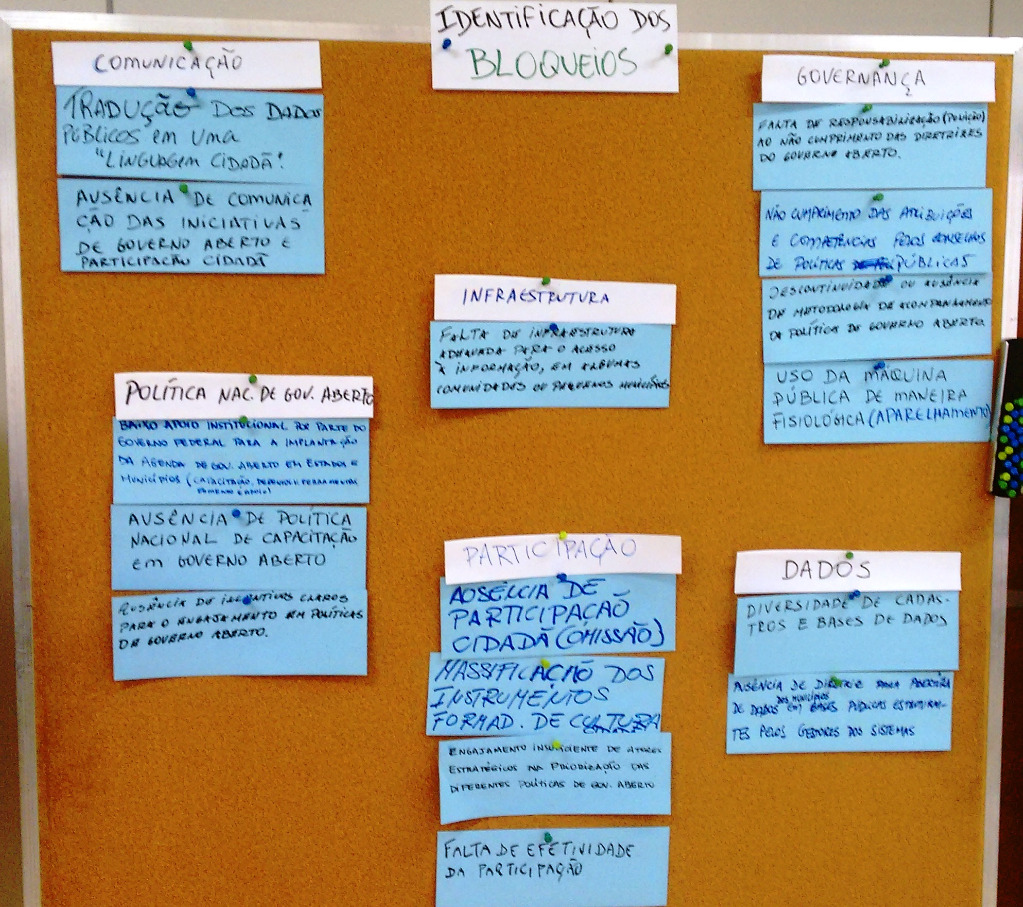 IDENTIFICAÇÃO DOS
BLOQUEIOS
COMUNICAÇÃO
TRADUÇÃO DOS DADOS
PÚBLICOS em uma
"LINGUAGEM CIDADÃ".
AUSÊNCIA DE COMUNICA
ÇÃO DAS INICIATIVAS
DE GOVERNO ABERTO E
PARTICIPAÇÃO CIDADÃ
POLÍTICA NAC. DE GOV. ABERTO
BAIXO APOIO INSTITUCIONAL POR PARTE DO
GOVERNO FEDERAL PARA A IMPLANTAÇÃO
DA AGENDA DE GOV. ABERTO EM ESTADOS E
MUNICÍPIOS (CAPACITAÇÃO, FERRAMENTAS
FOMENTO E APOIO)
AUSÊNCIA DE POLÍTICA
NACIONAL DE CAPACITAÇÃO
em GOVERNO ABERTO
AUSÊNCIA DE INCENTIVOS CLAROS
PARA O ENGAJAMENTO EM POLÍTICAS
DE GOVERNO ABERTO.
INFRAESTRUTURA
FALTA DE INFRAESTRUTURA
ADEQUADA PARA O ACESSO
À INFORMAÇÃO, EM ALGUMAS
COMUNIDADES OU PEQUENOS MUNICÍPIOS
PARTICIPAÇÃO
AUSÊNCIA DE
PARTICIPAÇÃO
CIDADÃ (OMISSÃO)
MASSIFICAÇÃO DOS
INSTRUMENTOS
FORMAD. DE CULTURA
ENGAJAMENTO INSUFICIENTE DE ATORES
ESTRATÉGICOS NA PRIORIZAÇÃO DAS
DIFERENTES POLÍTICAS DE GOV. ABERTO
FALTA DE EFETIVIDADE
DA PARTICIPAÇÃO
GOVERNANÇA
FALTA DE RESPONSABILIZAÇÃO (PUNIÇÃO)
AO NÃO CUMPRIMENTO DAS DIRETRIZES
DO GOVERNO ABERTO.
NÃO CUMPRIMENTO DAS ATRIBUIÇÕES
E COMPETÊNCIAS PELOS CONSELHOS
DE POLÍTICAS PÚBLICAS
DESCONTINUIDADE OU AUSÊNCIA
DE METODOLOGIA DE ACOMPANHAMENTO
DA POLÍTICA DE GOVERNO ABERTO.
USO DA MÁQUINA
PÚBLICA DE MANEIRA
FISIOLÓGICA (APARELHAMENTO)
DADOS
DIVERSIDADE DE CADAS-
TROS E BASES DE DADOS
AUSÊNCIA DE DIRETRIZ PARA ABERTURA
DOS MUNICÍPIOS
DE DADOS EM BASES PÚBLICAS ESTRUTURAN-
TES PELOS GESTORES DOS SISTEMAS